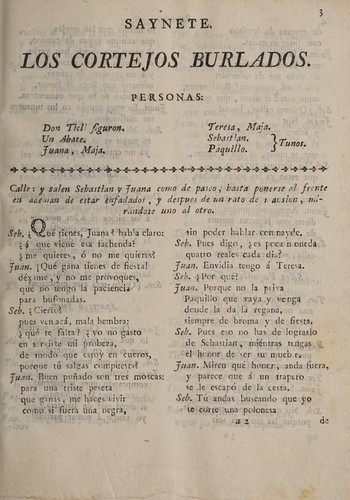 3
SAYNETE.
LOS CORTEJOS BURLADOS.
PERSONAS:
Don Ticli figuron.
Un Abate.
Juana, Maja.
Teresa, Maja.
Sebastian.
Paquillo.
Tunos.
Calle: y salen Sebastian y Juana como de paseo, hasta ponerse al frente
en ademan de estar enfadados, y despues de un rato de mansion, mi-
randose uno al otro.
Seb. ¿Qué tienes, Juana? habla claro:
¿á qué viene esa fachenda?
¿me quieres, ó no me quieres?
Juan. ¡Qué gana tienes de fiesta!
déxame, y no me provoques,
que no tengo la paciencia
para bufonadas.
Seb. ¿Cierto?
pues ven acá, mala hembra;
¿qué te falta? ¿yo no gasto
en servirte mi probeza,
de modo que estoy en cueros,
porque tú salgas compuesta?
Juan. Buen puñado son tres moscas:
para una triste peseta
que ganas, me haces vivir
como si fuera una negra,
sin poder hablar con nayde.
Seb. Pues digo, ¿es poca moneda
quatro reales cada dia?
Juan. Envidia tengo á Teresa.
Seb. ¿Por qué?
Juan. Porque no la priva
Paquillo que vaya y venga
donde la da la regana,
siempre de broma y de fiesta.
Seb. Pues eso no has de lograrlo
de Sebastian, mientras tengas
el honor de ser su mueble.
Juan. Miren qué honor, anda fuera,
y parece que á un trapero
se le escapó de la cesta.
Seb. Tú andas buscando que yo
te corte una polonesa
a 2
de